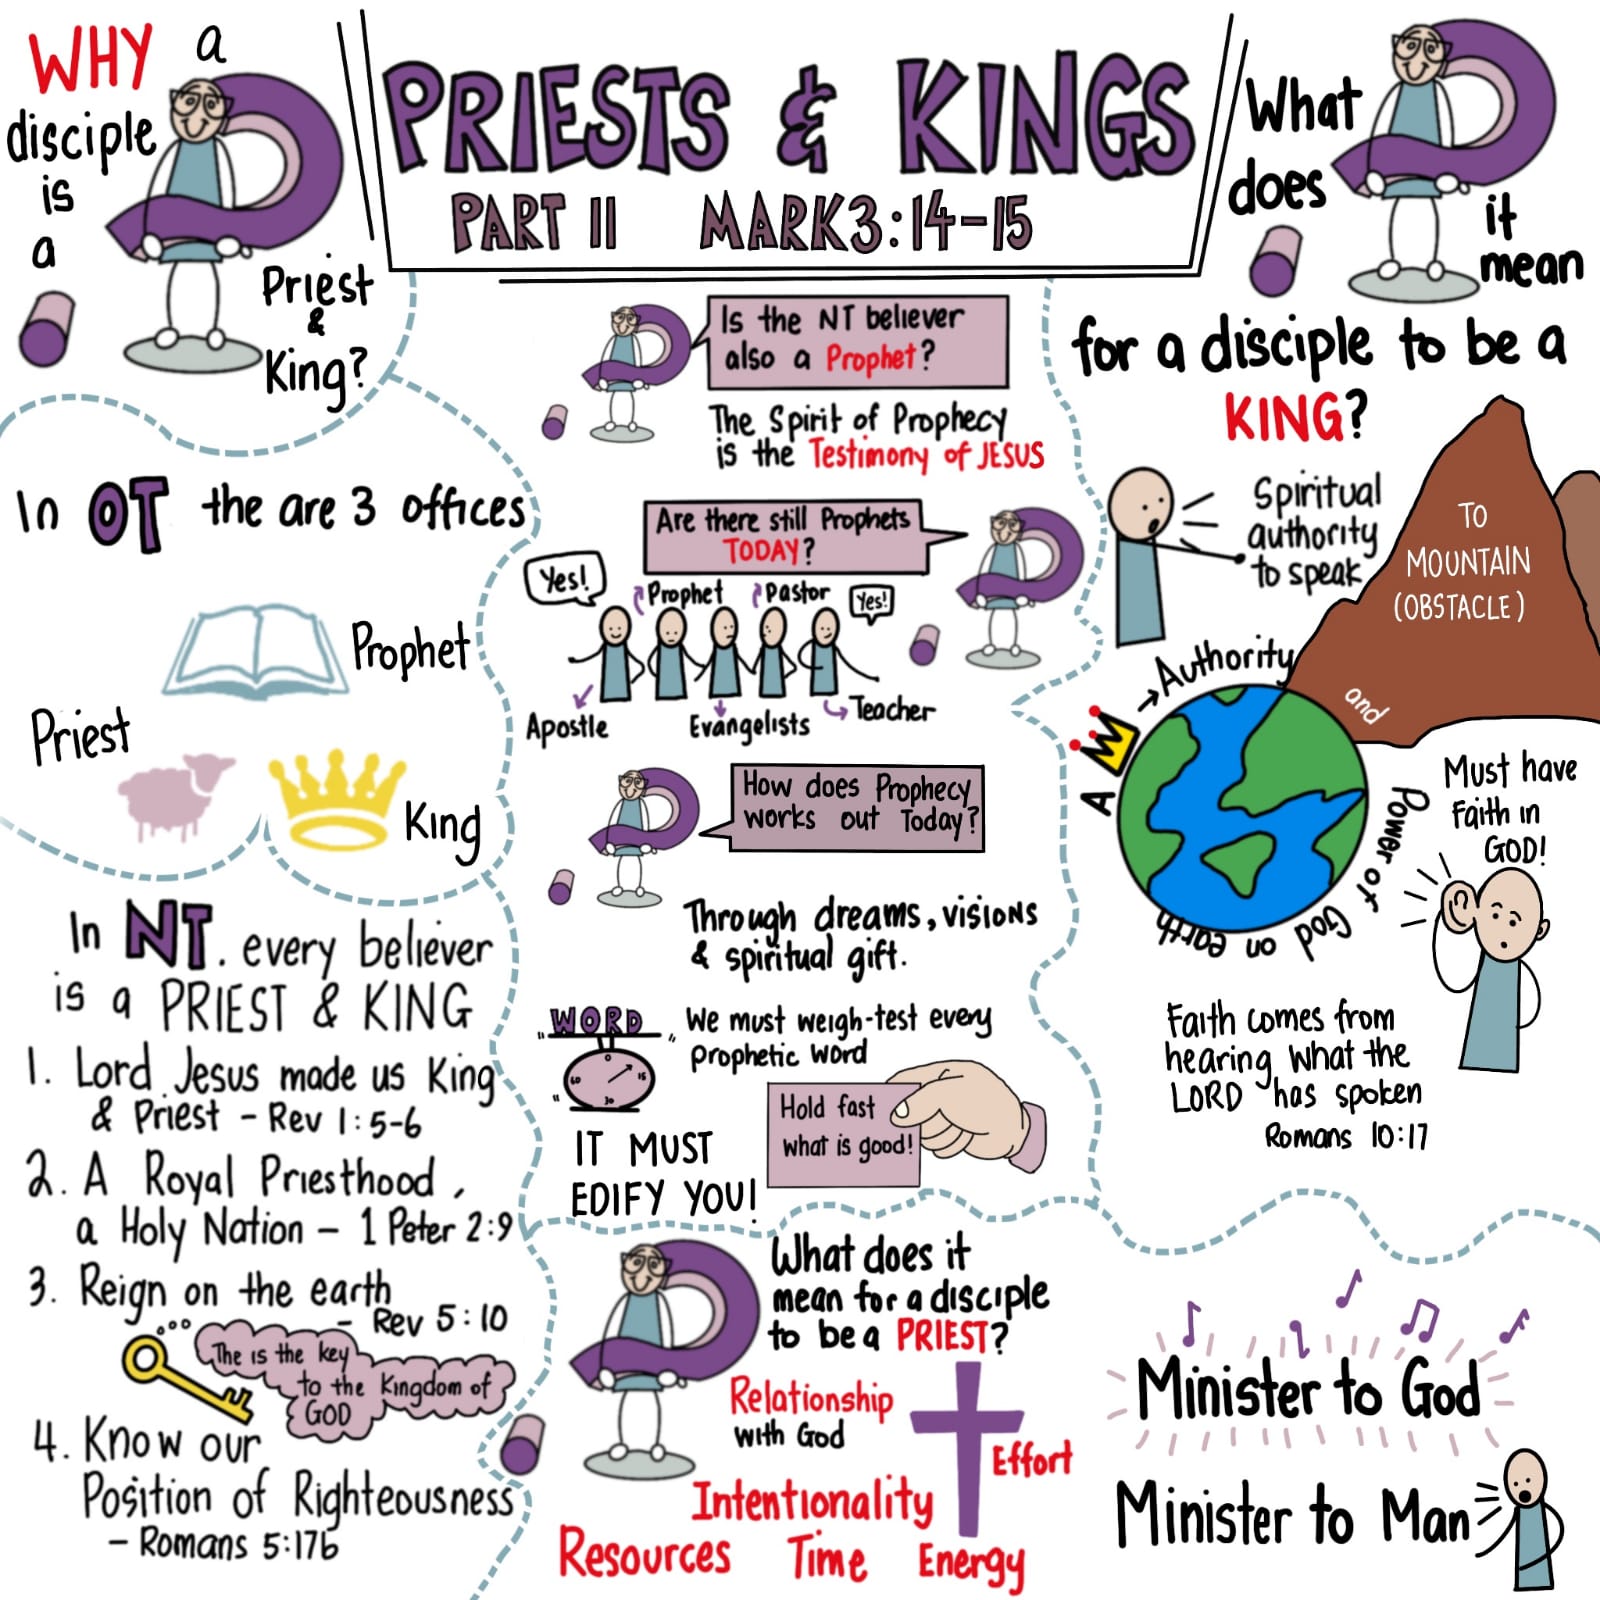 PRIESTS & KINGS
PART II MARK 3:14-15
WHY a
disciple
is
a
Priest
&
King?
In OT the are 3 offices
Prophet
Priest
King
In NT. every believer
is a PRIEST & KING
1. Lord Jesus made us King
& Priest - Rev 1:5-6
2. A Royal Priesthood,
a Holy Nation - 1 Peter 2:9
3. Reign on the earth
- Rev 5:10
The is the key
to the Kingdom of
GOD
4. Know our
Position of Righteousness
- Romans 5:17b
Is the NT believer
also a Prophet?
The Spirit of Prophecy
is the Testimony of JESUS
Are there still Prophets
TODAY?
Yes!
Prophet
Pastor
Yes!
Apostle
Evangelists
Teacher
How does Prophecy
works out Today?
Through dreams, visions
& spiritual gift.
WORD
0
15
30
60
We must weigh-test every
prophetic word
Hold fast
what is good!
IT MUST
EDIFY YOU!
What does it
mean for a disciple
to be a PRIEST?
Relationship
with God
Effort
Intentionality
Resources Time Energy
What
does
it
mean
for a disciple to be a
KING?
Spiritual
authority
to speak
TO
MOUNTAIN
(OBSTACLE)
A → Authority and Power of God on earth
Must have
Faith in
GOD!
Faith comes from
hearing what the
LORD has spoken
Romans 10:17
Minister to God
Minister to Man